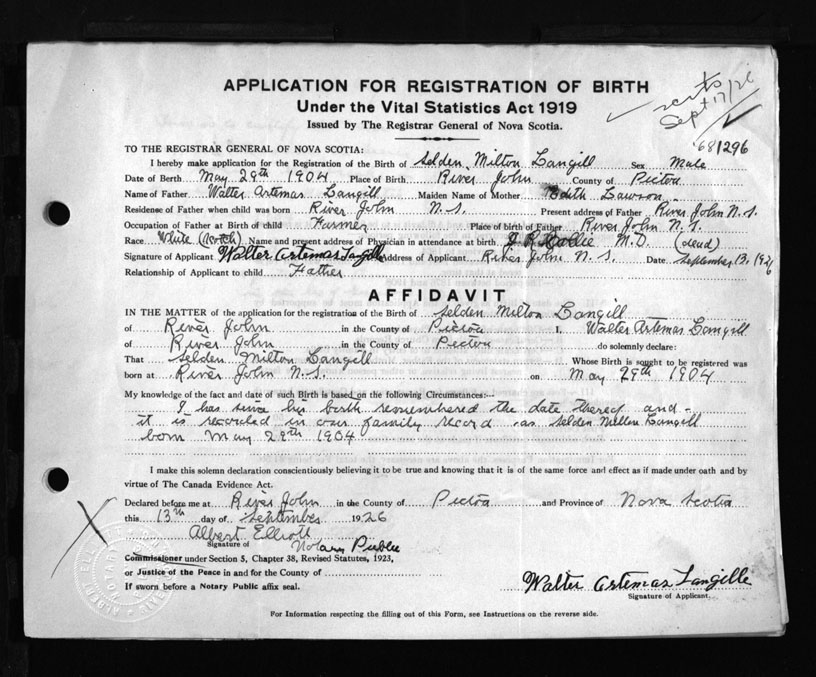 APPLICATION FOR REGISTRATION OF BIRTH
Under the Vital Statistics Act 1919
Issued by The Registrar General of Nova Scotia.
certs
Sept 17/26
681296
TO THE REGISTRAR GENERAL OF NOVA SCOTIA:
I hereby make application for the Registration of the Birth of Selden Milton Langill Sex Male
Date of Birth May 29th 1904 Place of Birth River John County of Pictou
Name of Father Walter Artemas Langill Maiden Name of Mother Edith Lawson
Residense of Father when child was born River John N.S. Present address of Father River John N.S.
Occupation of Father at Birth of child Farmer Place of birth of Father River John N.S.
Race White (Scotch) Name and present address of Physician in attendance at birth M.D. (dead)
Signature of Applicant Walter Artemas Langille Address of Applicant River John N.S. Date September 13, 1926
Relationship of Applicant to child Father
AFFIDAVIT
IN THE MATTER of the application for the registration of the Birth of Selden Milton Langill
of River John in the County of Pictou I, Walter Artemas Langill
of River John in the County of Pictou do solemnly declare:
That Selden Milton Langill Whose Birth is sought to be registered was
born at River John N.S. on May 29th 1904
My knowledge of the fact and date of such Birth is based on the following Circumstances:—
I has since his birth remembered the date thereof and
it is recorded in our family record as Selden Milton Langill
born May 29th 1904
I make this solemn declaration conscientiously believing it to be true and knowing that it is of the same force and effect as if made under oath and by
virtue of The Canada Evidence Act.
Declared before me at River John in the County of Pictou and Province of Nova Scotia
this 13th day of September 1926
Albert Elliott
Signature of Notary Public
Commissioner under Section 5, Chapter 38, Revised Statutes, 1923,
or Justice of the Peace in and for the County of
If sworn before a Notary Public affix seal.
Walter Artemas Langille
Signature of Applicant.
For Information respecting the filling out of this Form, see Instructions on the reverse side.